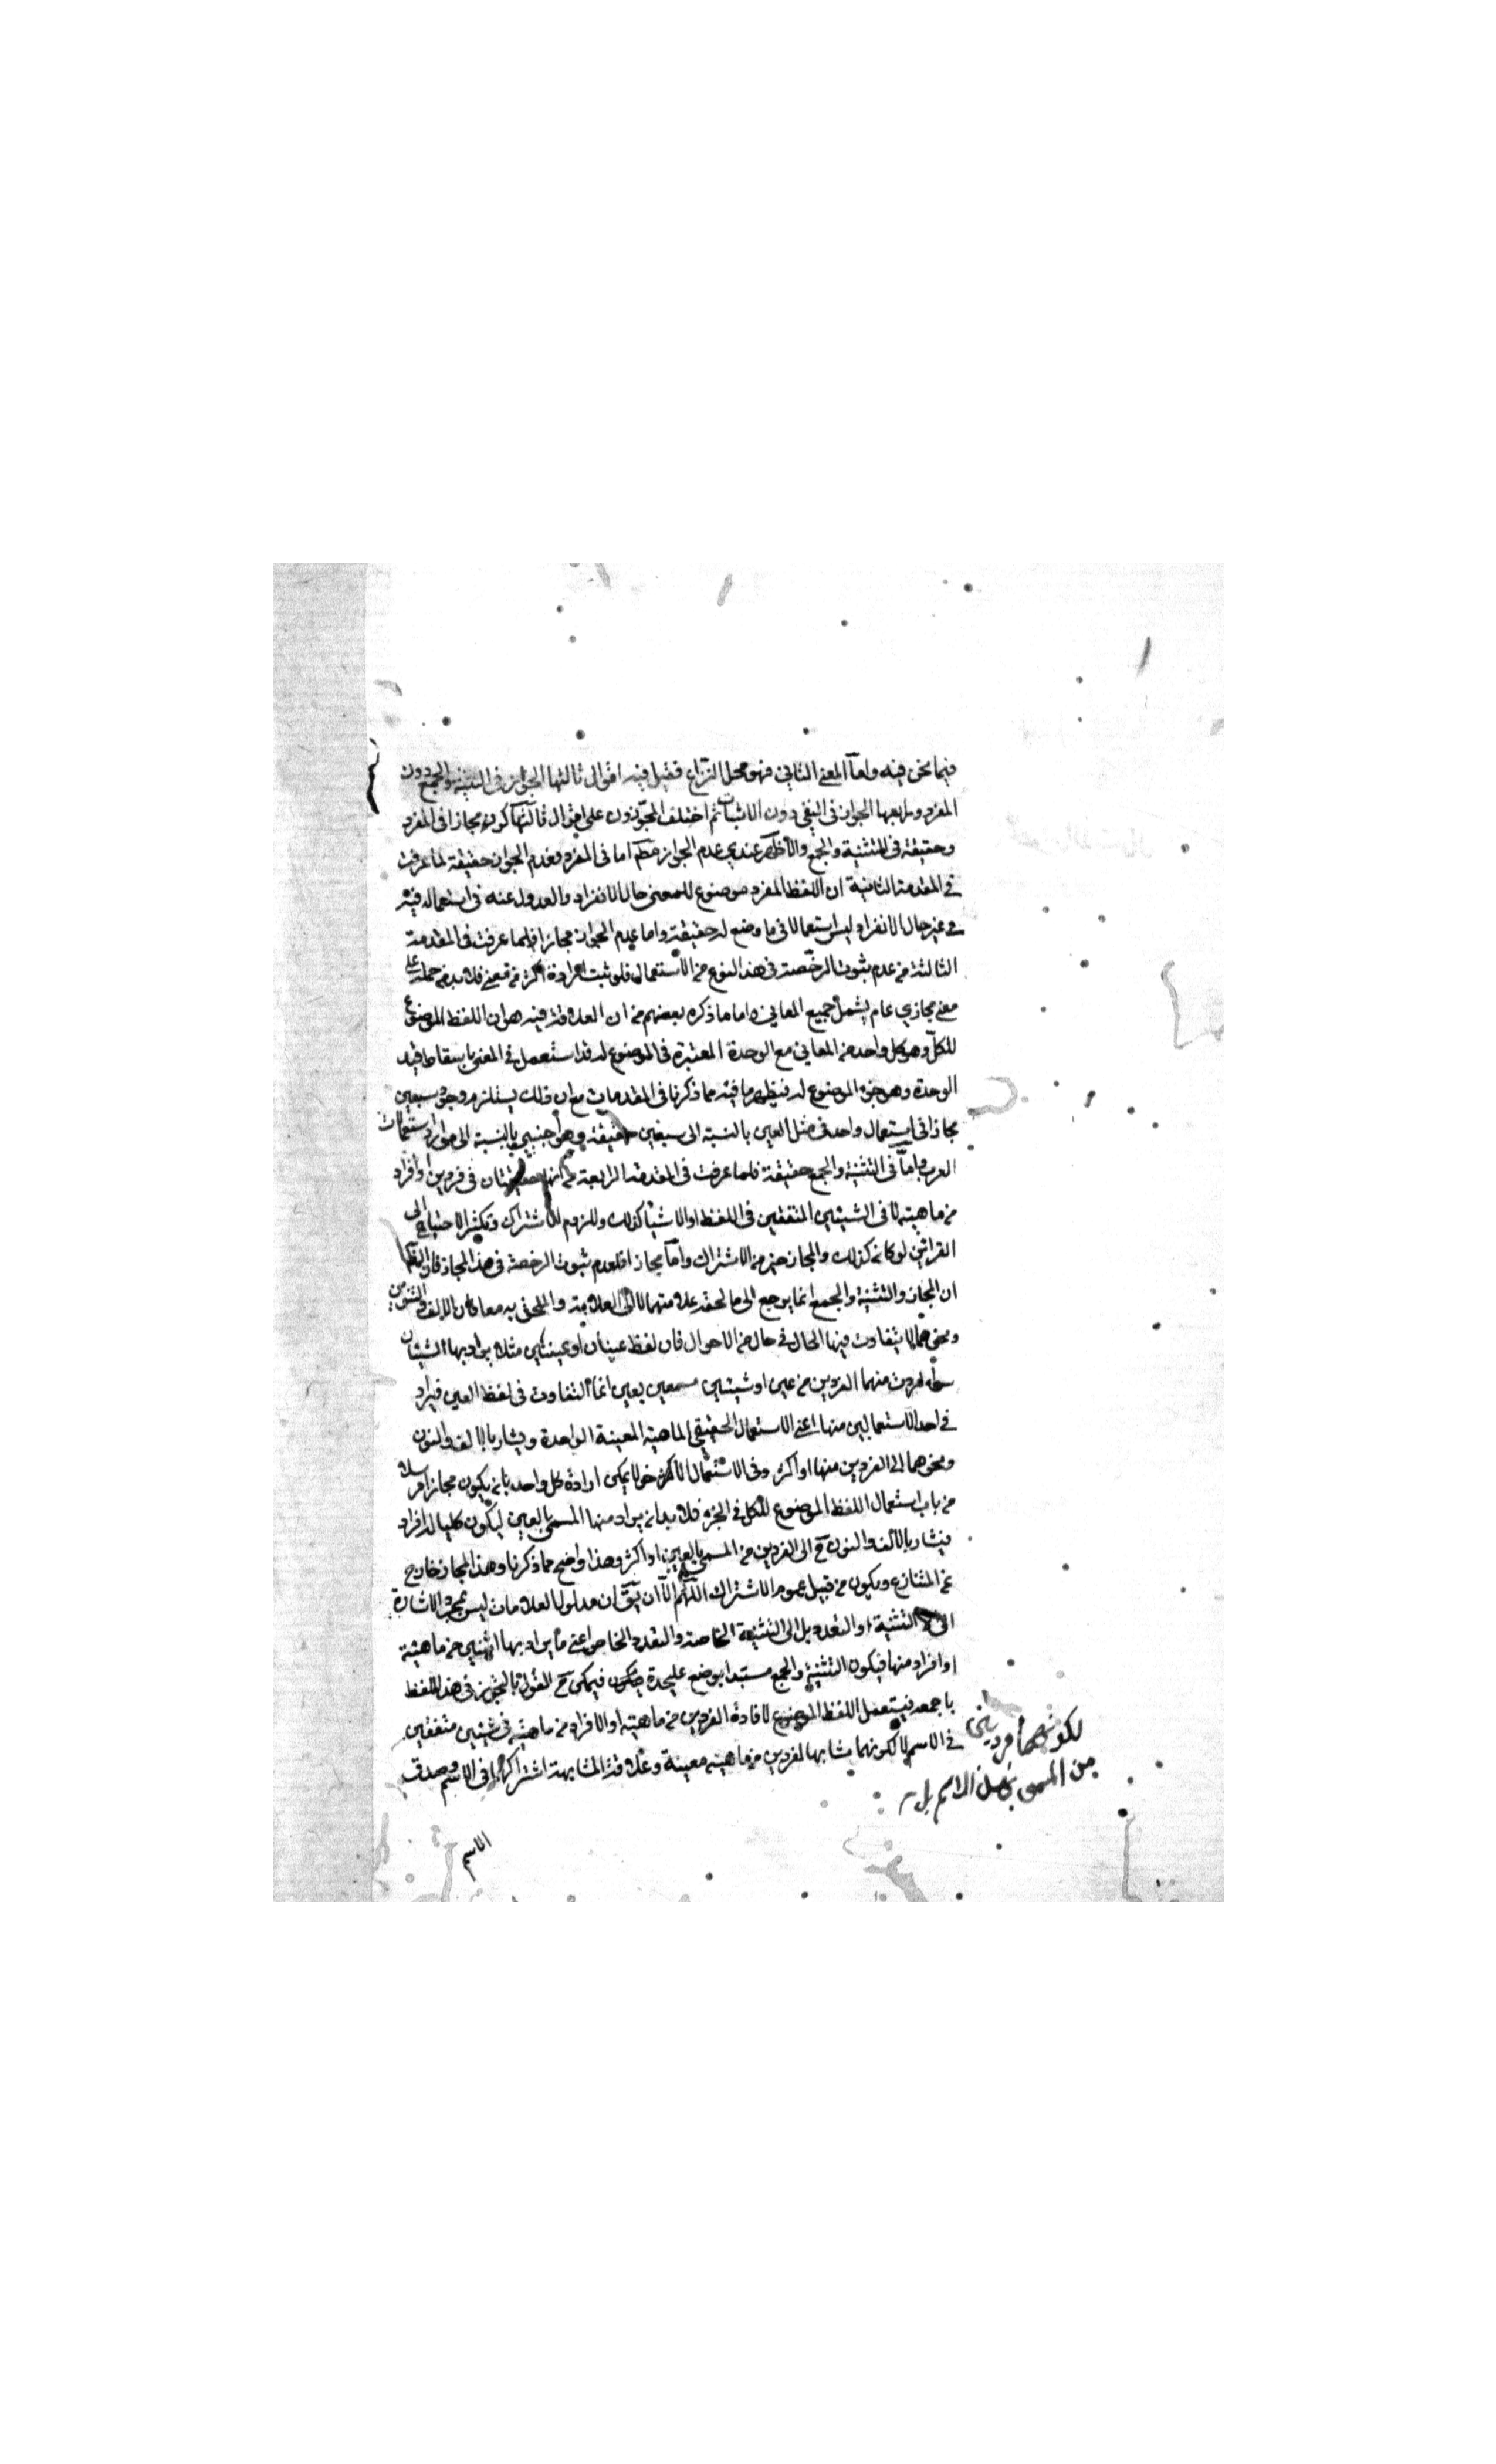 فيما نحن فيه واما المعنى الثاني فهو محل النزاع فقيل فيه اقوال ثالثها الجواز في التثنية والجمع دون
المفرد ورابعها الجواز في النفي دون الاثبات ثم اختلف المجوزون على اقوال ثالثها كونه مجازا في المفرد
وحقيقة في التثنية والجمع والاظهر عندي عدم الجواز مطم اما في المفرد فعدم الجواز حقيقة لما عرفت
في المقدمة الثانية ان اللفظ المفرد موضوع للمعنى حال الانفراد والعدول عنه في استعماله فيه
في غير حال الانفراد ليس استعمالا في ما وضع له حقيقة واما عدم الجواز مجازا فلما عرفت في المقدمة
الثالثة من عدم ثبوت الرخصة في هذا النوع من الاستعمال فلو ثبت ارادة اكثر من معنى فلا بد من حمله على
معنى مجازي عام يشمل جميع المعاني واما ما ذكره بعضهم من ان العلاقة فيه هو ان اللفظ الموضوع
للكل وهو كل واحد من المعاني مع الوحدة المعتبرة في الموضوع له قد استعمل في المعنى باسقاط قيد
الوحدة وهو جزء الموضوع له فيظهر ما فيه مما ذكرنا في المقدمات مع ان ذلك يستلزم وجود سبعين
مجازا في استعمال واحد في مثل العين بالنسبة الى سبعين حقيقة وهو اجنبي بالنسبة الى موارد استعمالات
العرب واما في التثنية والجمع حقيقة فلما عرفت في المقدمة الرابعة من انهما حقيقتان في فردين او افراد
من ماهية لا في الشيئين المتفقين في اللفظ او الاشياء كذلك وللزوم الاشتراك وتكثر الاحتياج الى
القرائن لو كان كذلك والمجاز خير من الاشتراك واما مجازا فلعدم ثبوت الرخصة في هذا المجاز فان
ان المجاز والتثنية والجمع انما يرجع الى ما لحقه علامتهما لا الى العلامة والملحق به معا فان الالف والنون
ونحوهما لا يتفاوت فيها الحال في حال من الاحوال فان لفظ عينان او عينين مثلا يراد بها الشيئان
سواء اردت منهما الفردين من عين او شيئين مسميين بعين انما التفاوت في لفظ العين فيراد
في احد الاستعمالين منها اعني الاستعمال الحقيقي الماهية المعينة الواحدة ويشار بالالف والنون
ونحوهما الى الفردين منها او اكثر وفي الاستعمال الاخر لا يمكن ارادة كل واحد بان يكون مجازا مرسلا
من باب استعمال اللفظ الموضوع للكل في الجزء فلا بد ان يراد منها المسمى بالعين ليكون كليا له افراد
فيشار بالالف والنون ح الى الفردين من المسمى بالعين او اكثر وهذا واضح مما ذكرنا وهذا المجاز خارج
عن المتنازع ويكون من قبيل عموم الاشتراك اللهم الا ان يق ان مدلول العلامات ليس مجرد الاشارة
الى التثنية او التعدد بل الى التثنية الخاصة والتعدد الخاص اعني ما يراد بها اثنين من ماهية
او افراد منها فيكون التثنية والجمع مستبدا بوضع عليحدة فيمكن ح القول بالتجوز في هذا اللفظ
باجمعه فيستعمل اللفظ الموضوع لافادة الفردين من ماهية او الافراد من ماهية في شيئين متفقين
في الاسم لا لكونهما مشابها لفردين من ماهية معينة وعلاقة المشابهة اشتراكهما في الاسم وصدق
لكونهما فردين
من المسمى بهذا الاسم بل
الاسم